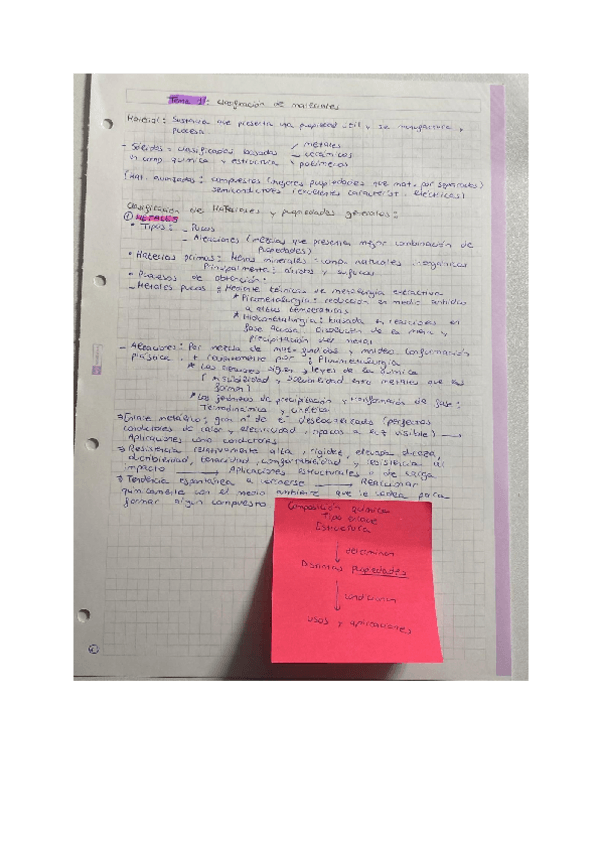 Tema 1: Clasificación de materiales
Material: Sustancia que presenta una propiedad útil y se manufactura y
procesa.
- Sólidos = clasificados basados → metales
en comp. química y estructura → cerámicos
→ polímeros
(Mat. avanzados: compuestos (mejores propiedades que mat. por separado)
semiconductores (excelentes caracterist. eléctricas)
Clasificación de Materiales y propiedades generales:
① METALES
• Tipos: - Puros
- Aleaciones (mezclas que presentan mejor combinación de
propiedades)
• Materias primas: Menas minerales naturales inorgánicas
Principalmente: óxidos y sulfuros
• Procesos de obtención:
- Metales puros = Mediante técnicas de metalurgia extractiva
* Pirometalurgia: reducción en medio
a altas temperaturas
* Hidrometalurgia: basada en reacciones en
fase acuosa. Disolución de la mena y
precipitación del metal
- Aleaciones: Por mezcla de mat. fundidos y moldeo. Conformación
plástica. + :
* Las aleaciones siguen leyes de la química
(miscibilidad y solubilidad entre metales que las
forman)
* Los fenómenos de precipitación y transformación de fase:
Termodinámica y cinética
⇒ Enlace metálico; gran nº de e⁻ deslocalizados (perfectos
conductores de calor y electricidad, opacos a luz visible) →
Aplicaciones como conductores
⇒ Resistencia relativamente alta, rigidez, elevada dureza,
ductibilidad, tenacidad, conformabilidad y resistencia al
impacto → Aplicaciones estructurales o de carga
⇒ Tendencia espontánea a → Reaccionar
químicamente con el medio ambiente que le rodea para
formar algún compuesto
Composición química
Tipo enlace
Estructura
↓ determinan
Distintas propiedades
↓ condicionan
usos y aplicaciones